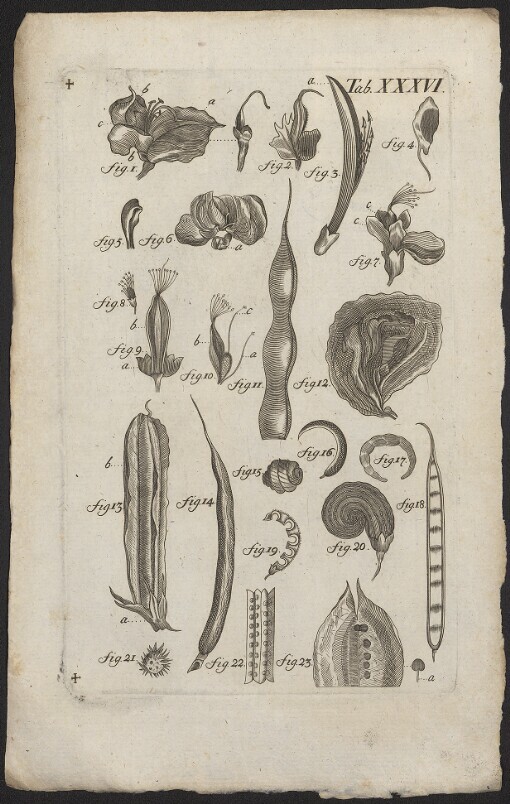 Tab. XXXVI.
a
b
c
a
b
fig. 1.
fig. 2.
fig. 3.
fig. 4.
fig. 5.
fig. 6.
a
c
c
fig. 7.
fig. 8.
b
fig. 9.
a
b
c
a
fig. 10.
fig. 11.
fig. 12.
b
fig. 13
a
fig. 14.
fig. 15
fig. 16.
fig. 17.
fig. 18.
fig. 19.
fig. 20.
fig. 21
fig. 22.
fig. 23
a